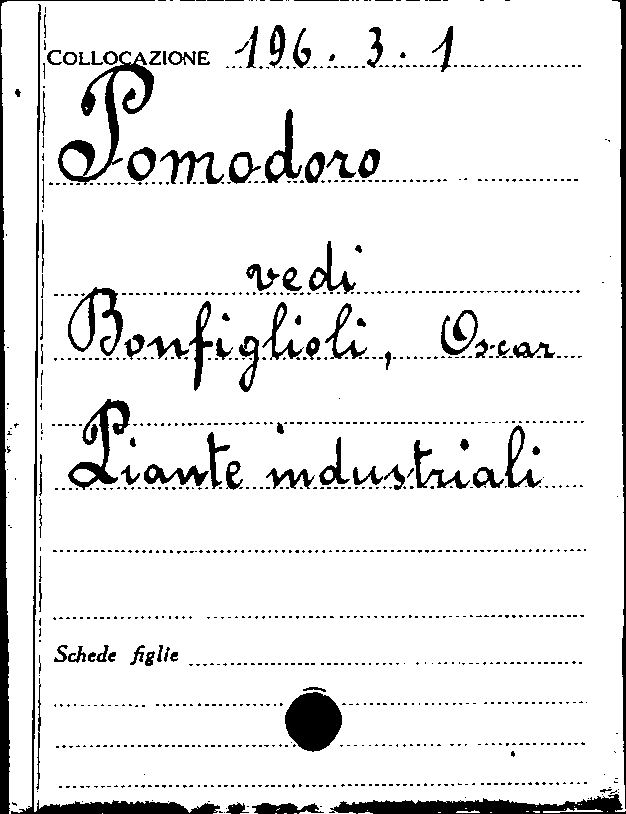 COLLOCAZIONE 196 . 3 . 1
Pomodoro
vedi
Bonfiglioli, Oscar
Piante industriali
Schede figlie